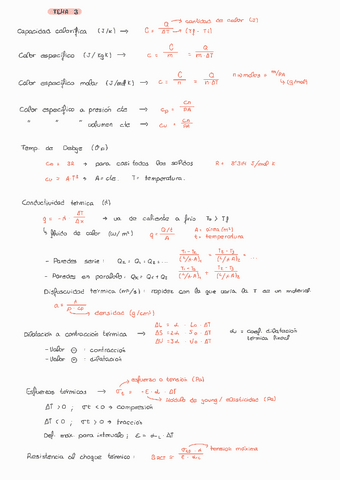 TEMA 3
Capacidad calorífica (J/K) → C = Q/ΔT → cantidad de calor (J) → (Tf - Ti)
Calor específico (J/kgK) → c = C/m = Q/m·ΔT
Calor específico molar (J/molK) → c = C/n = Q/n·ΔT n=nºmoles = m/PA (g/mol)
Calor específico a presión cte → cp = cm/PA
" " " volumen cte → cv = cm/PA
Temp. de Debye (θD)
cm = 3R → para casi todos los solidos R = 8'314 J/mol·K
cv = AT³ → A = cte. T = temperatura.
Conductividad térmica (K)
q = -K ΔT/Δx → va de caliente a frío To > Tf
↳ fluido de calor (W/m²) q = Q/t/A A = area (m²)
t = temperatura
- Paredes serie: Qx = Q1 = Q2 = ...
- Paredes en paralelo: Qx = Q1 + Q2
Difusividad térmica (m²/s): rapidez con la que varía la T de un material
densidad (g/cm³)
Dilatación o contracción térmica → ΔL = α · Lo · ΔT α = coef. dilatación
ΔS = 2α · So · ΔT térmica lineal
ΔV = 3α · Vo · ΔT
- Valor ⊖ : contracción
- Valor ⊕ : dilatación
Esfuerzos térmicos → σt = -E · α · ΔT
esfuerzo o tensión (Pa)
módulo de young / elasticidad (Pa)
ΔT > 0 ; σt < 0 → compresión
ΔT < 0 ; σt > 0 → tracción
Def. máx para intervalo ; ε = αL · ΔT
Resistencia al choque térmico: tensión máxima